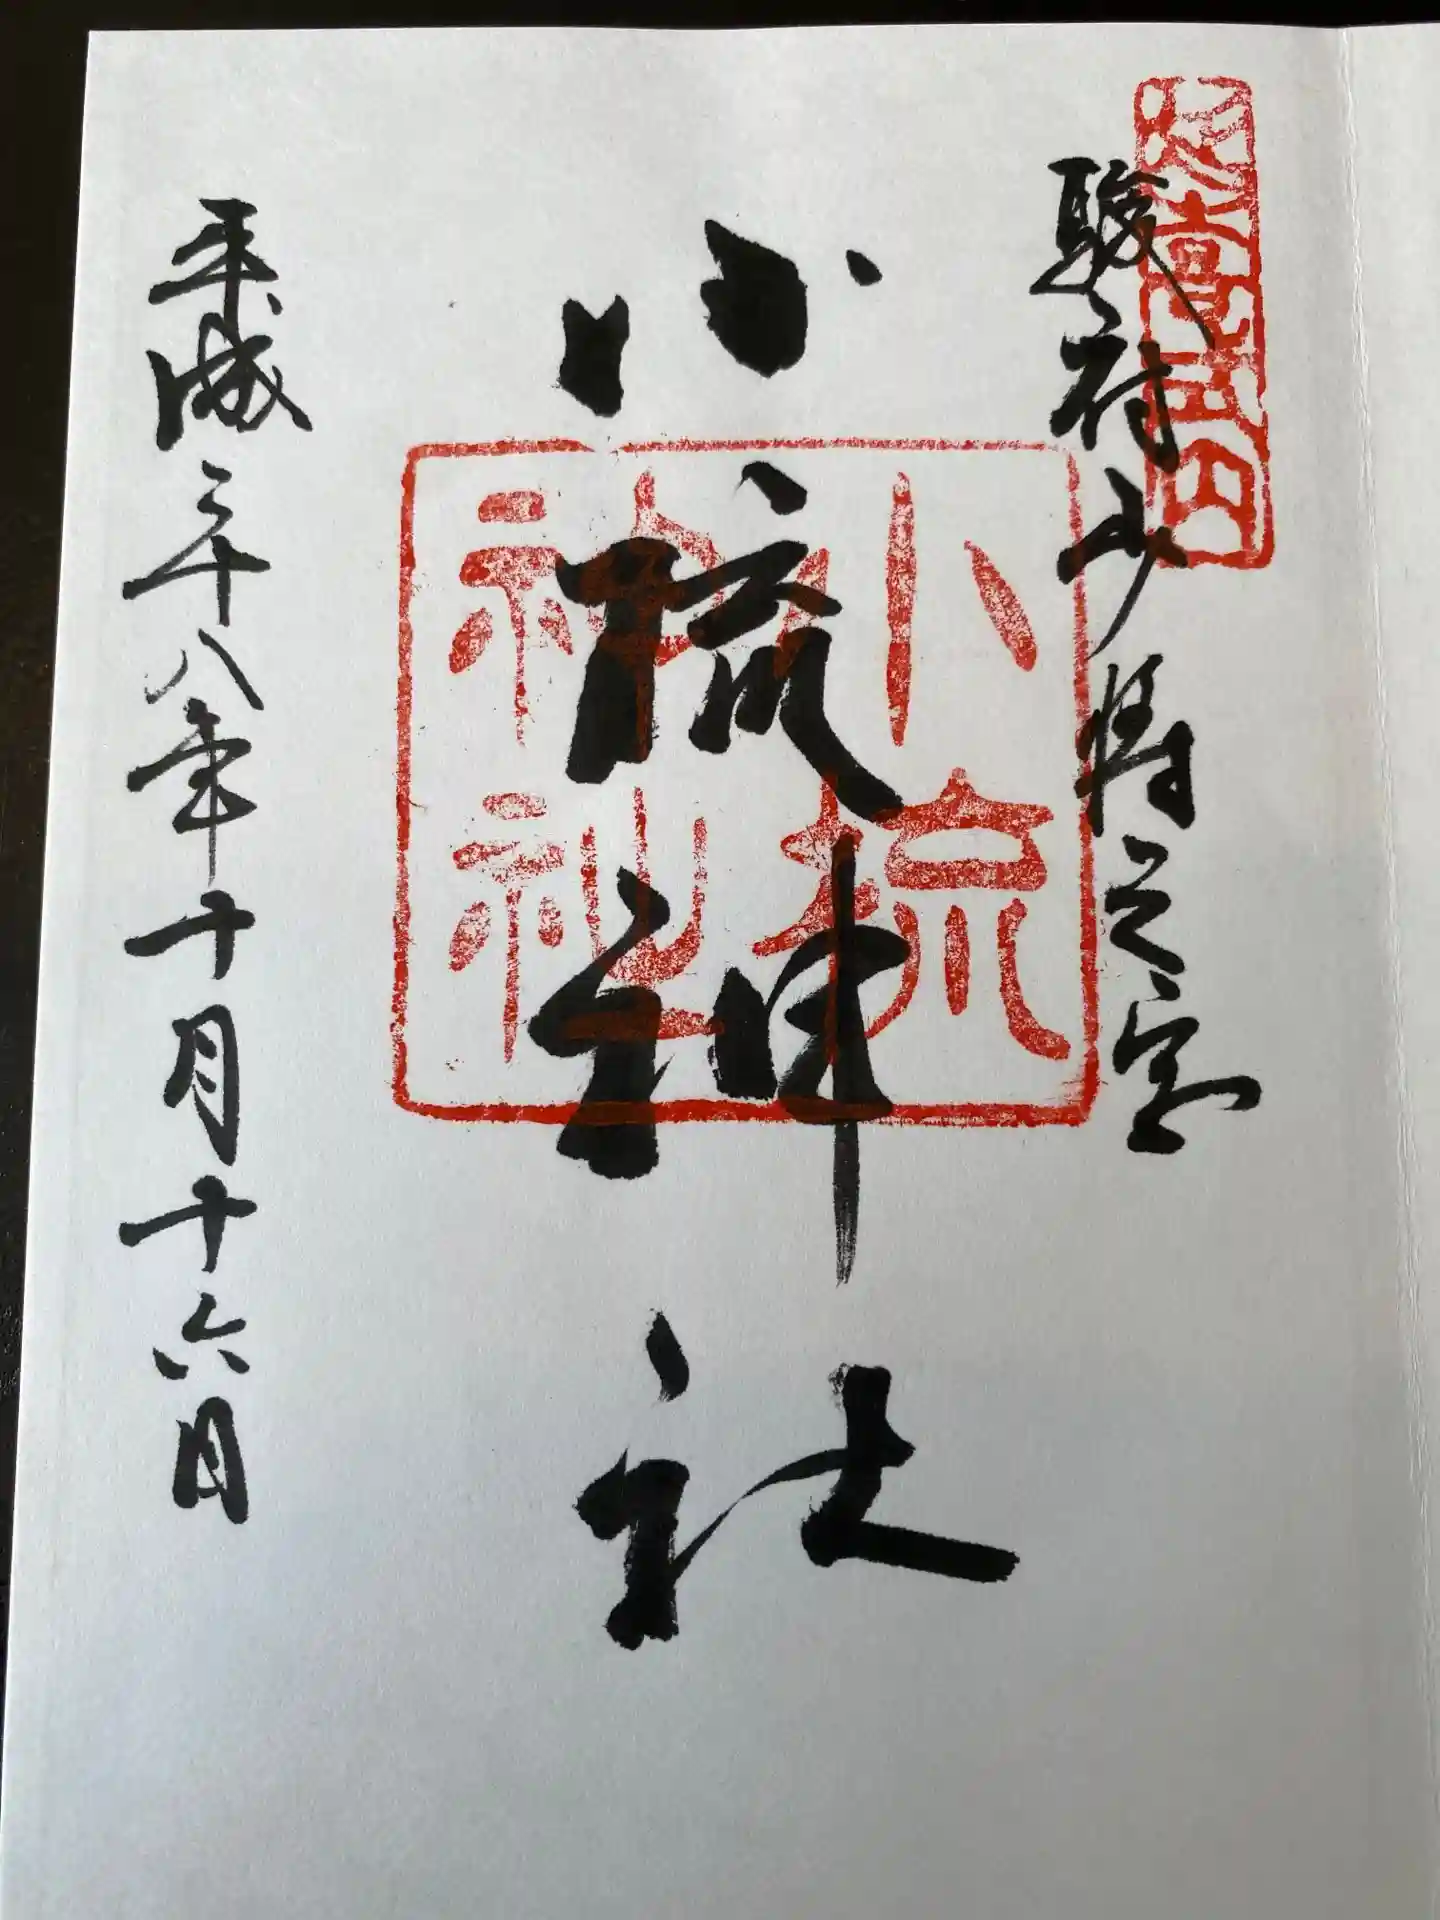 延喜式内
駿府少将之宮
小梳神社
小梳
神社
平成二十八年十月十六日